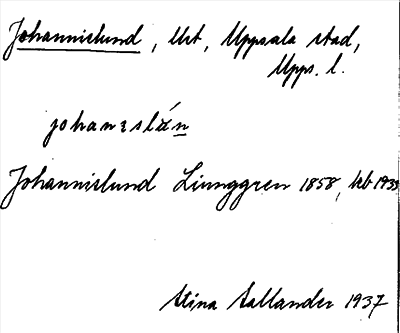 Johannislund, Urt, Uppsala stad,
Upps. l.
johanɛslán
Johannislund Ljunggren 1858, krb 1933
Stina Sallander 1937